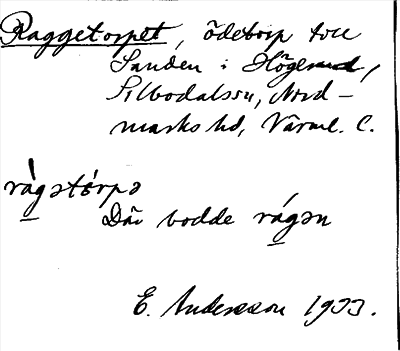 Raggetorpet, ödetorp till
Sanden i Högerud,
Silbodalssn, Nord-
marks hd, Värml. C.
ràgətórpə
Där bodde rágən
E. Andersson 1933.